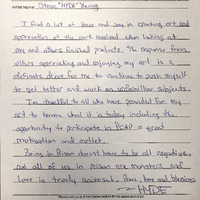 Artist Name: Steve "HYDE" Young
I find a lot of peace and joy in creating art and
appreciation of the art involved when looking at
my and others finished products. The response from
others appreciating and enjoying my art is a
definite drive for me to continue to push myself
to get better and work on unfamiliar subjects.
I'm thankful to all who have provided for my
art to become what it is today including the
opportunity to participate in PCAP a great
motivation and outlet.
Being in Prison doesn't have to be all negative,
not all of us in prison are monsters and
love is truely universal. Peace, love and blessings
~ HYDE